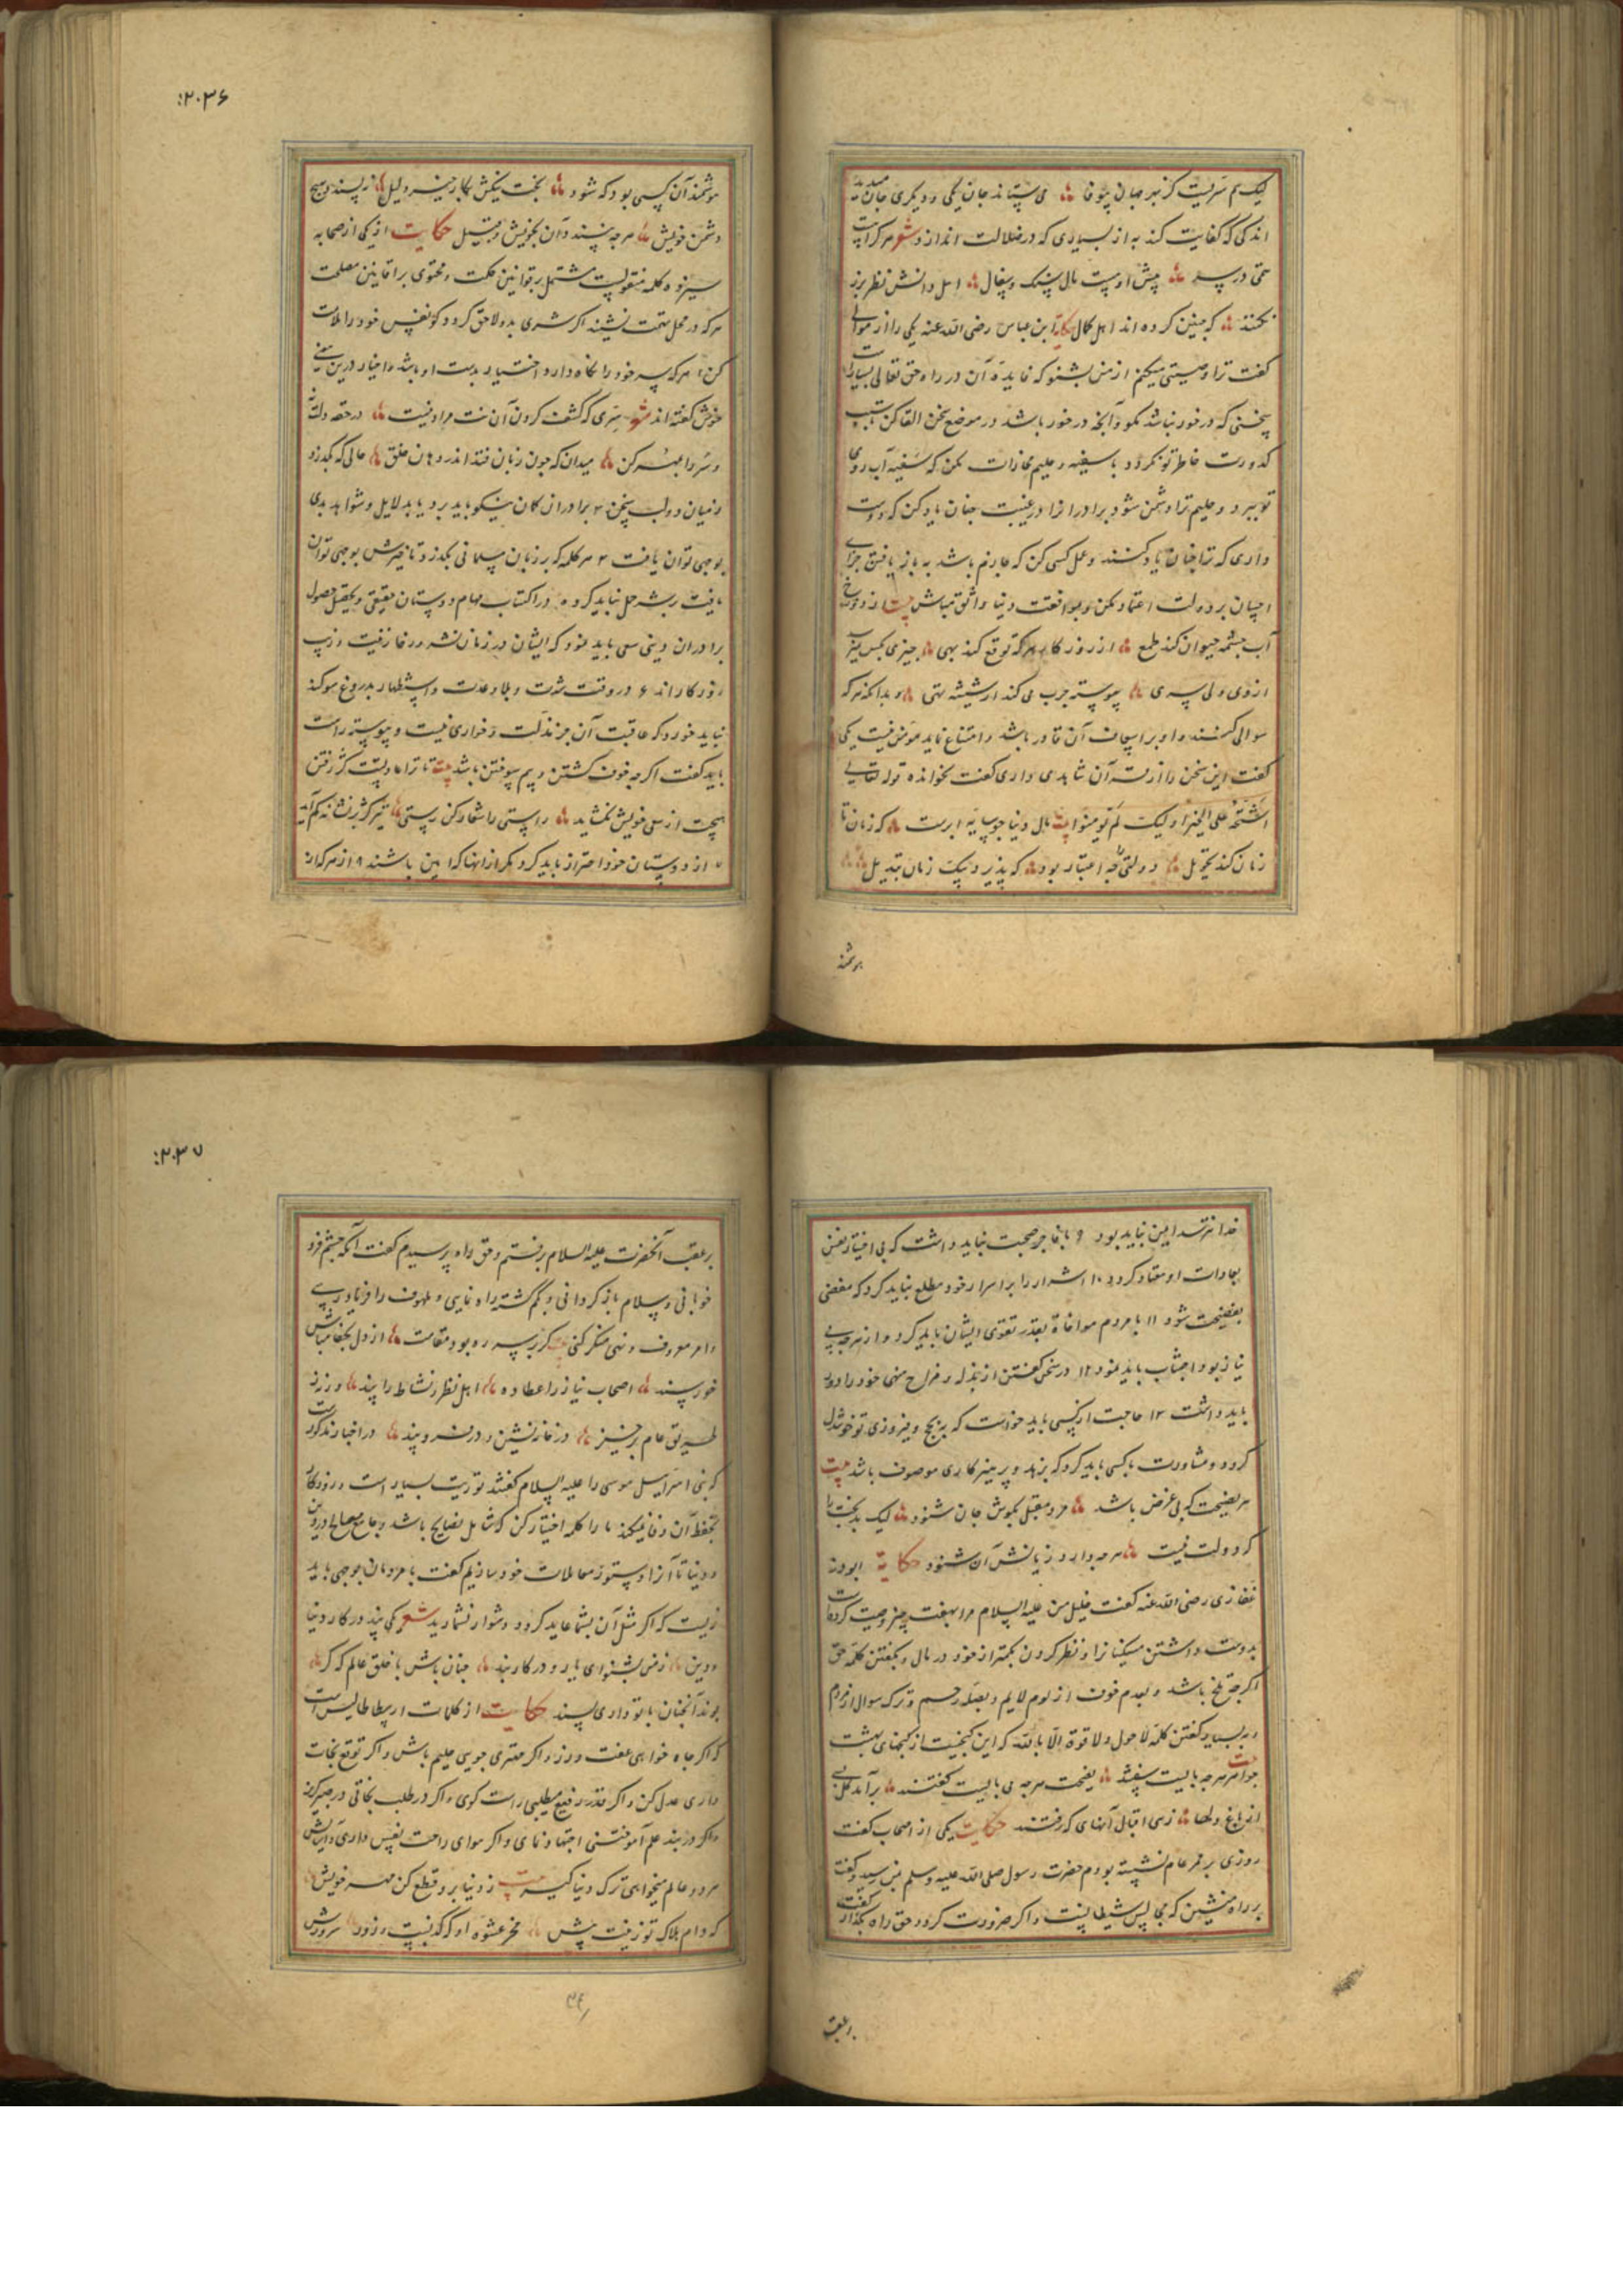 لیک هم سریست کز بهر جهان بیوفا می ستاند جان یکی و دیگری جان میدهد
اندکی که کفایت کند به از بسیاری که در ضلالت اندازد شعر هرکراست
همتی در سر پیش اوست مال سنک و سفال اهل دانش نظر بزر
نکنند که چنین کرده اند اهل کمال حکایة ابن عباس رضی الله عنه یکی را از موالی
کفت ترا وصیتی میکنم از من بشنو که فایدهٔ آن در راه حق تعالی بسیارست
سخنی که در خور نباشد مکو و آنچه در خور باشد در موضع سخن القا کن تا سبب
کدورت خاطر تو نکردد با سفیه و حلیم مجازات مکن که سفیه آب روی
تو ببرد و حلیم ترا دشمن شود برادر انرا در غیبت چنان یاد کن که دوست
داری که ترا چنان یاد کنند و عمل کسی کن که عازم باشد به باز یافتن جزای
احسان بر دولت اعتماد مکن و بموافقت دنیا واثق مباش بیت
آب چشمه حیوان کند طمع از روزکار هرکه توقع کند بهی چیزی بکس نمیرسد
ازوی ولی سری پیوسته چرب می کند از شیشه تهی و بدانکه هرکه
سوالی کنند و او بر اسعاف آن قادر باشد و امتناع نماید مومن نیست یکی
کفت این سخن را از قرآن شاهدی داری کفت بخوانده قوله تعالی
اشحة علی الخیر اولیک لم یومنوا بیت مال دنیا چو سایه ابرست که زمان تا
زمان کند تحویل دولتی را چه اعتبار بود که پذیرد بیک زمان تبدیل
هوشمند
۲۰۳۶
هوشمند آن کسی بود که شود بخت نیکش بکار خیر دلیل نه پسندد هیچ
دشمن خویش هرچه نپسندد آن بخویش و قبیل حکایت از یکی از صحابه
سیزده کلمه منقولست مشتمل بر قوانین حکمت و محتوی بر افانین مصلحت
هرکه در محل تهمت نشیند اکر شری بدو لاحق کردد کو نفس خود را ملامت
کن ۲ هرکه سر خود را نکاه دارد اختیار بدست او باشد و اخیار درین معنی
خوش کفته اند شعر سری که کشف کردن آن نت مراد نیست در حقه دلت
و سر را بمهر کن میدان که چون زبان فتد اندر دهان خلق حالی که بکذرد
ز میان دو لب سخن ۳ برادران کمان نیکو باید برد یا بدلایل و شواهد بدی
بوجهی توان یافت ۴ هر کلمه که بر زبان مسلمانی بکذرد تا خیرش بوجهی توان
یافت بر شر حمل نباید کرد ۵ در اکتساب مهام دوستان حقیقی و تحصیل حصول
برادران دینی سعی باید نمود که ایشان در زمان نشر و رخا زینت و زیب
روزکار اند ۶ در وقت شدت و بلا وعدت و استظهار بدروغ سوکند
نباید خورد که عاقبت آن جز مذلت و خواری نیست و پیوسته راست
باید کفت اکرچه خوف کشتن و بیم سوختن باشد بیت تا ترا عادتست کژ رفتن
هیچت از سعی خویش نکشاید راستی را شعار کن ز پستی تیر کژ بر نشانه کم آید
۷ از دوستان خود احتراز باید کرد مکر از انها که امین باشند ۸ از هرکه از
خدا نترسد ایمن نباید بود ۹ با فاجر صحبت نباید داشت که بی اختیار نفس
بعادات او معتاد کردد ۱۰ اشرار را بر اسرار خود مطلع نباید کرد که مفضی
بفضیحت شود ۱۱ با مردم مواخاة بقدر تقوی ایشان باید کرد و از هرچه بی
نیاز بود اجتناب باید نمود ۱۲ در سخن کفتن از بذله و مزاح منهی خود را دور
باید داشت ۱۳ حاجت از کسی باید خواست که بنجح و فیروزی تو خوشدل
کردد و مشاورت با کسی باید کرد که بزهد و پرهیزکاری موصوف باشد بیت
هر نصیحت که بی غرض باشد مرد مقبل بکوش جان شنود لیک بدبخت را
کر دولت نیست هرچه دارد زیانش آن شنود حکایة ابوذر
غفاری رضی الله عنه کفت خلیل من علیه السلام مرا بهفت چیز وصیت کرده است
بدوست داشتن مسکینان و نظر کردن بکمتر از خود در مال و بکفتن کلمه حق
اکرچه تلخ باشد و بعدم خوف از لوم لایم و بصله رحم و ترک سوال از مردم
و به بسیار کفتن کلمه لا حول و لا قوة الا بالله که این کنجیست از کنجهای بهشت
بیت جواهر هرچه بایست سفتند نصیحت هرچه می بایست کفتند بر آمد کلی
از باغ دلها زهی اقبال آنهای که رفتند حکایت یکی از اصحاب کفت
روزی بر ممر عام نشسته بودم حضرت رسول صلی الله علیه وسلم بمن رسید و کفت
بر راه منشین که مجالس شیطانست و اکر ضرورت کردد حق راه بکذار کفت
بر عقب
۲۰۳۷
بر عقب آنحضرت علیه السلام برفتم و حق راه پرسیدم کفت آنکه چشم فرو
خوابانی و سلام باز کردانی و کم کشته را راه نمایی و ملهوف را فریاد رسی
و امر معروف و نهی منکر کنی بیت کر بر سر ره بود مقامت از دل بجفا مباش
خورسند اصحاب نیاز را عطا ده اهل نظر نشاط را پند ور نه ز
طریق عام برخیز در خانه نشین و در فرو بند در اخبار مذکورست
که بنی اسرائیل موسی را علیه السلام کفتند توریت بسیار است و روزکار
بحفظ آن وفا نمیکند ما را کلمه اختیار کن که شامل نصایح باشد و جامع مصالح در دین
و دنیا تا آنرا دستور معاملات خود سازیم کفت با مردمان بوجهی باید
زیست که اکر مثل آن بشما عاید کردد دشوار نشمارید شعر یکی پند در کار دنیا
و دین ز من بشنو ای یار و در کار بند چنان باش با خلق عالم که کر
بوند آنچنان با تو داری پسند حکایت از کلمات ارسطاطالیس است
که اکر جاه خواهی عفت ورز و اکر مهتری جویی حلیم باش و اکر توقع نجات
داری عدل کن و اکر قدر رفیع میطلبی راست کوی و اکر در طلب نجاتی در صبر کریز
و اکر در بند علم آموختنی اجتهاد نمای و اکر هوای راحت نفس داری و آسایش
هر دو عالم میخواهی ترک دنیا کیر بیت ز دنیا برو قطع کن مهر خویش
که دام هلاک تو زینت پیش مخر عشوه او که کندنیست و زود